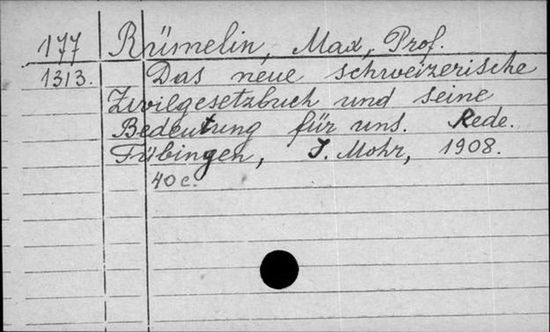 177 Rümelin, Max, Prof.
1313. Das neue schweizerische
Zivilgesetzbuch und seine
Bedeutung für uns. Rede.
Tübingen, J. Mohr, 1908.
40 c.